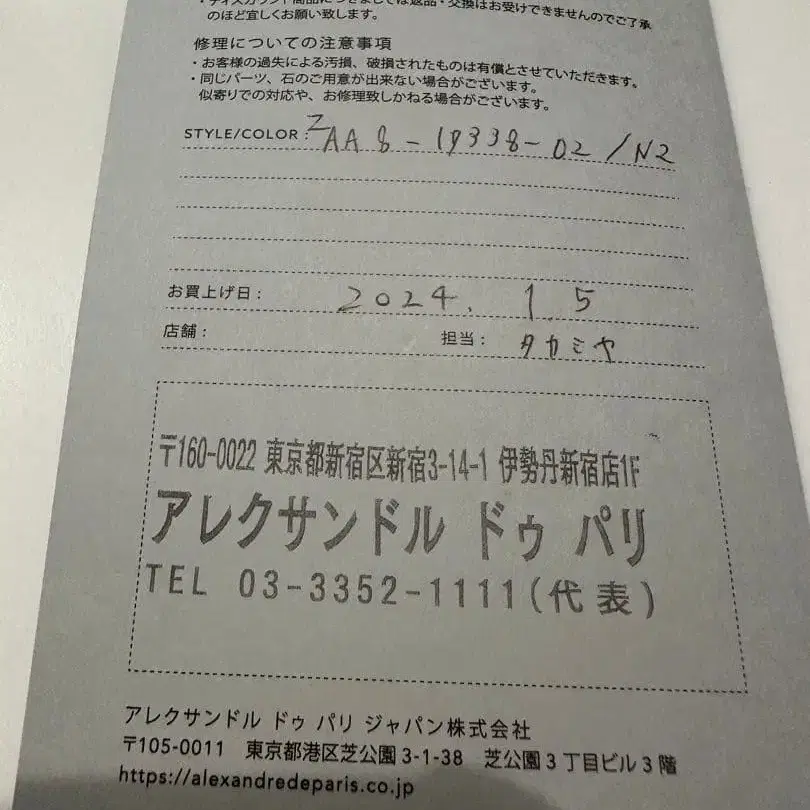 ・ディスカウント商品につきましては返品・交換はお受けできませんのでご了承
のほど宜しくお願い致します。
修理についての注意事項
・お客様の過失による汚損、破損されたものは有償とさせていただきます。
・同じパーツ、石のご用意が出来ない場合がございます。
似寄りでの対応や、お修理致しかねる場合がございます。
STYLE/COLOR : ZAA8-19338-02/N2
お買上げ日： 2024. 1. 5
店舗： 担当： タカミヤ
〒160-0022 東京都新宿区新宿3-14-1 伊勢丹新宿店1F
アレクサンドル ドゥ パリ
TEL 03-3352-1111(代表)
アレクサンドル ドゥ パリ ジャパン株式会社
〒105-0011 東京都港区芝公園3-1-38 芝公園3丁目ビル3階
https://alexandredeparis.co.jp